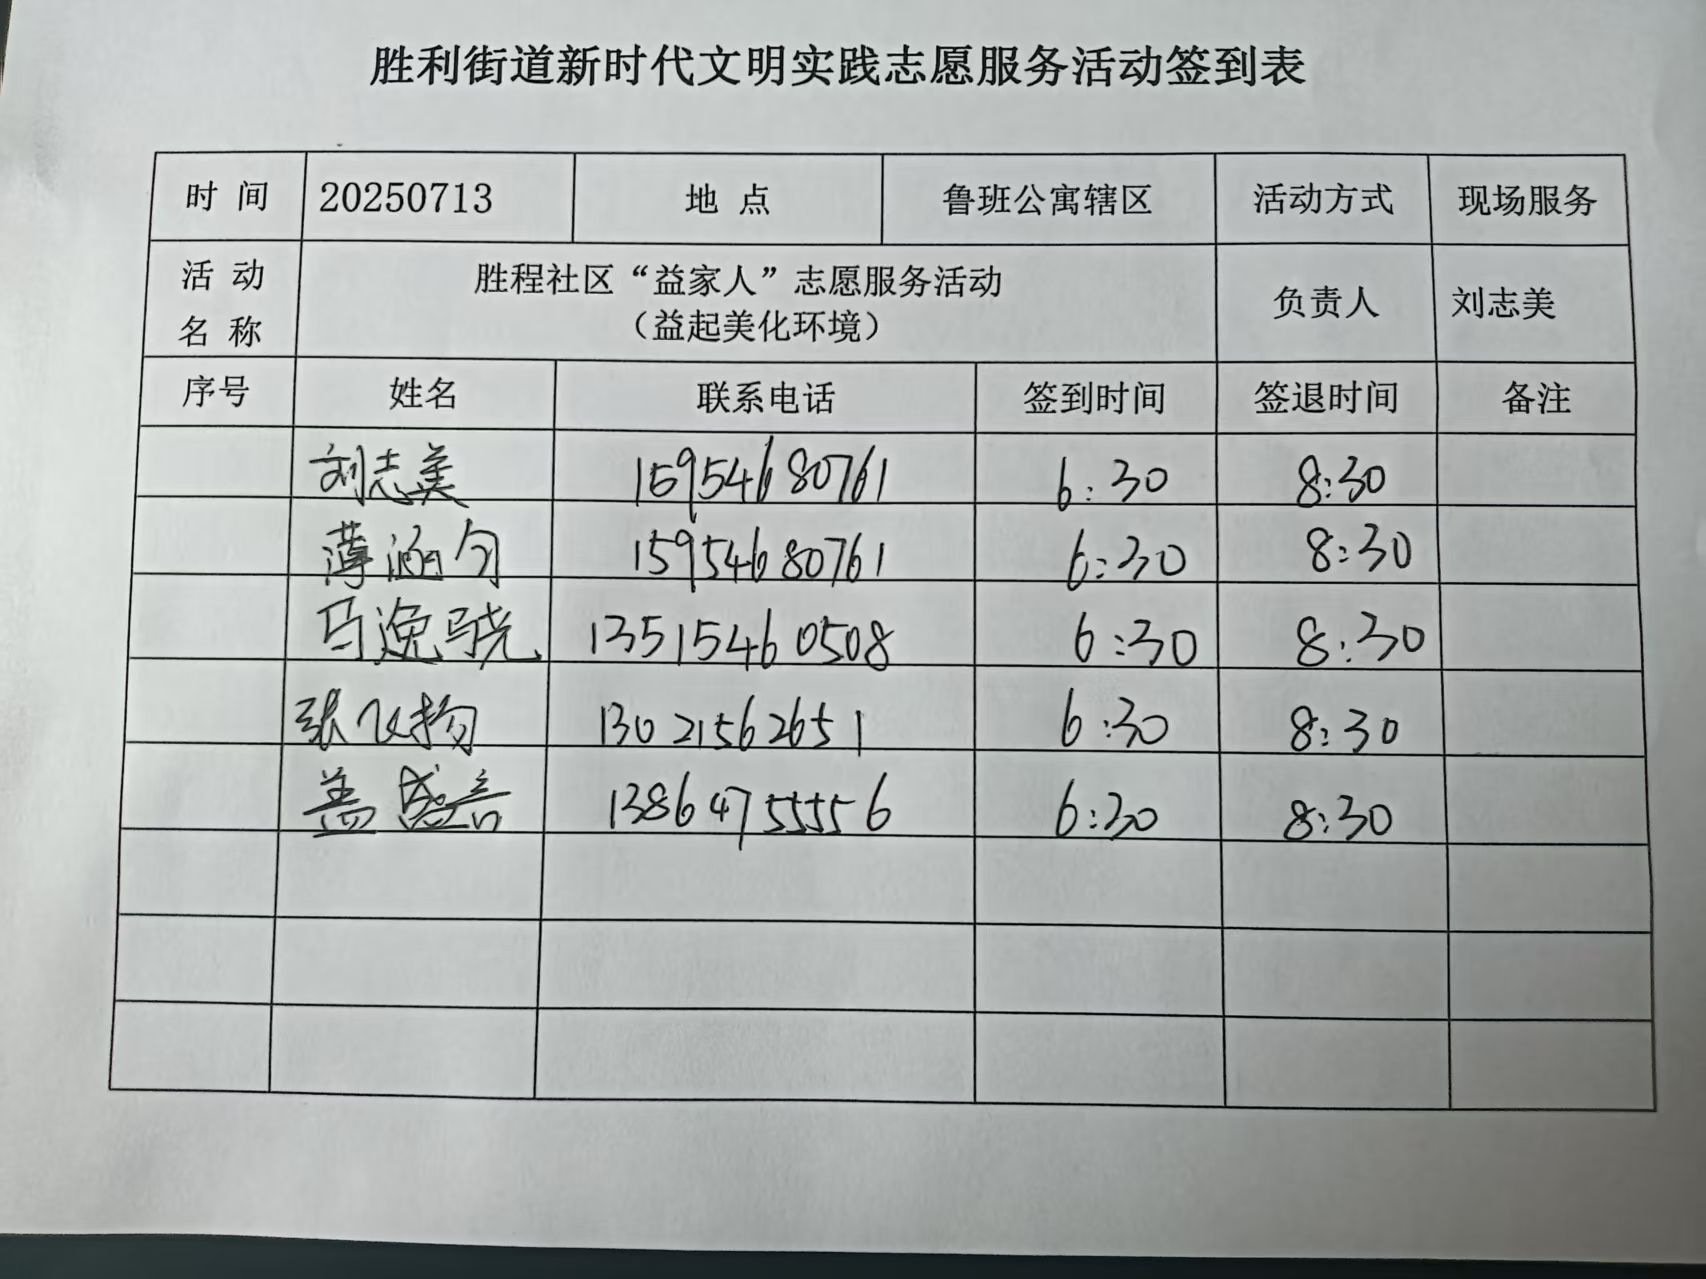 胜利街道新时代文明实践志愿服务活动签到表
时 间 20250713 地 点 鲁班公寓辖区 活动方式 现场服务
活 动 名 称 胜程社区“益家人”志愿服务活动 负责人 刘志美
（益起美化环境）
序号 姓名 联系电话 签到时间 签退时间 备注
刘志美 15954680761 6:30 8:30
薄涵匀 15954680761 6:30 8:30
马逸骁 13515460508 6:30 8:30
张飞扬 13021562651 6:30 8:30
盖盛言 13864755556 6:30 8:30